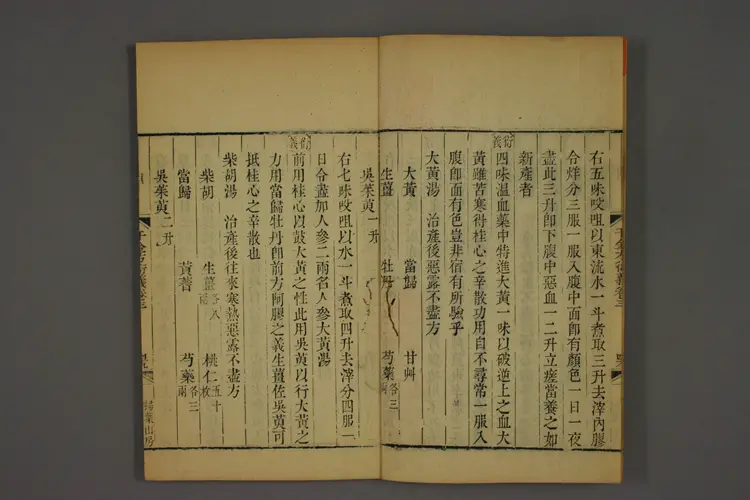 右五味㕮咀以東流水一斗煮取三升去滓內膠
令烊分三服一服入腹中面卽有顏色一日一夜
盡此三升卽下腹中惡血一二升立瘥當養之如
新產者
衍義
四味溫血藥中特進大黃一味以破逆上之血大
黃雖苦寒得桂心之辛散功用自不尋常一服入
腹卽面有色豈非宿有所驗乎
大黃湯 治產後惡露不盡方
大黃 當歸 甘艸
生薑 牡丹 芍藥各三兩
吳茱萸一升
右七味㕮咀以水一斗煮取四升去滓分四服一
日令盡加人參二兩名人參大黃湯
衍義
前用桂心以鼓大黃之性此用吳萸以行大黃之
力用當歸牡丹卽前方阿膠之義生薑佐吳萸可
抵桂心之辛散也
柴胡湯 治產後往來寒熱惡露不盡方
柴胡 生薑各八兩 桃仁五十枚
當歸 黃耆 芍藥各三兩
吳茱萸二升
千金方衍義卷三
掃葉山房